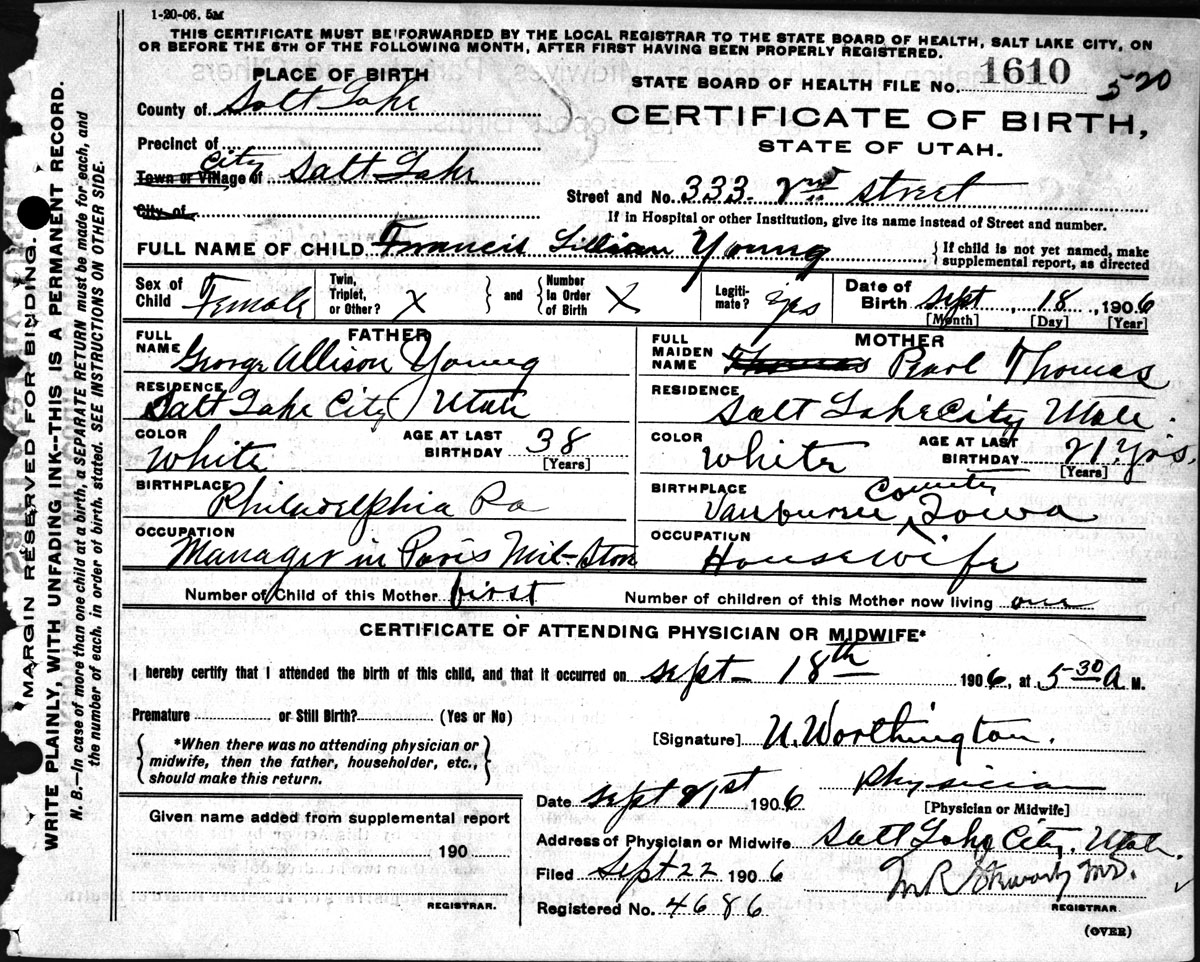 1-20-06. 5M
THIS CERTIFICATE MUST BE FORWARDED BY THE LOCAL REGISTRAR TO THE STATE BOARD OF HEALTH, SALT LAKE CITY, ON
OR BEFORE THE 5TH OF THE FOLLOWING MONTH, AFTER FIRST HAVING BEEN PROPERLY REGISTERED.
MARGIN RESERVED FOR BINDING.
WRITE PLAINLY, WITH UNFADING INK--THIS IS A PERMANENT RECORD.
N. B.—In case of more than one child at a birth, a SEPARATE RETURN must be made for each, and
the number of each, in order of birth, stated. SEE INSTRUCTIONS ON OTHER SIDE.
PLACE OF BIRTH
County of Salt Lake
Precinct of
City
Town or Village of Salt Lake
City of
STATE BOARD OF HEALTH FILE NO. 1610 520
CERTIFICATE OF BIRTH,
STATE OF UTAH.
Street and No. 333. 2nd street
If in Hospital or other Institution, give its name instead of Street and number.
FULL NAME OF CHILD Francis Lillian Young { If child is not yet named, make
supplemental report, as directed
Sex of Child Female Twin, Triplet, or Other? X } and { Number In Order of Birth X Legiti-mate? yes Date of Birth Sept 18, 1906
[Month] [Day] [Year]
FATHER
FULL NAME George Allison Young
RESIDENCE
Salt Lake City Utah
COLOR White AGE AT LAST BIRTHDAY 38
[Years]
BIRTHPLACE Philadelphia Pa
OCCUPATION
Manager in Paris Mil-Store
MOTHER
FULL MAIDEN NAME Thomas Pearl Thomas
RESIDENCE
Salt Lake City Utah.
COLOR White AGE AT LAST BIRTHDAY 21 Yrs.
[Years]
BIRTHPLACE County
Vanburen Iowa
OCCUPATION Housewife
Number of Child of this Mother first Number of children of this Mother now living one
CERTIFICATE OF ATTENDING PHYSICIAN OR MIDWIFE*
I hereby certify that I attended the birth of this child, and that it occurred on Sept- 18th 1906, at 5 30 A M.
Premature or Still Birth? (Yes or No)
{ *When there was no attending physician or
midwife, then the father, householder, etc.,
should make this return. }
[Signature] U. Worthington.
Physician
[Physician or Midwife]
Date Sept 21st 1906
Address of Physician or Midwife Salt Lake City. Utah.
Given name added from supplemental report
190
REGISTRAR.
Filed Sept 22 1906
Registered No. 4686
M.D.
REGISTRAR.
(OVER)